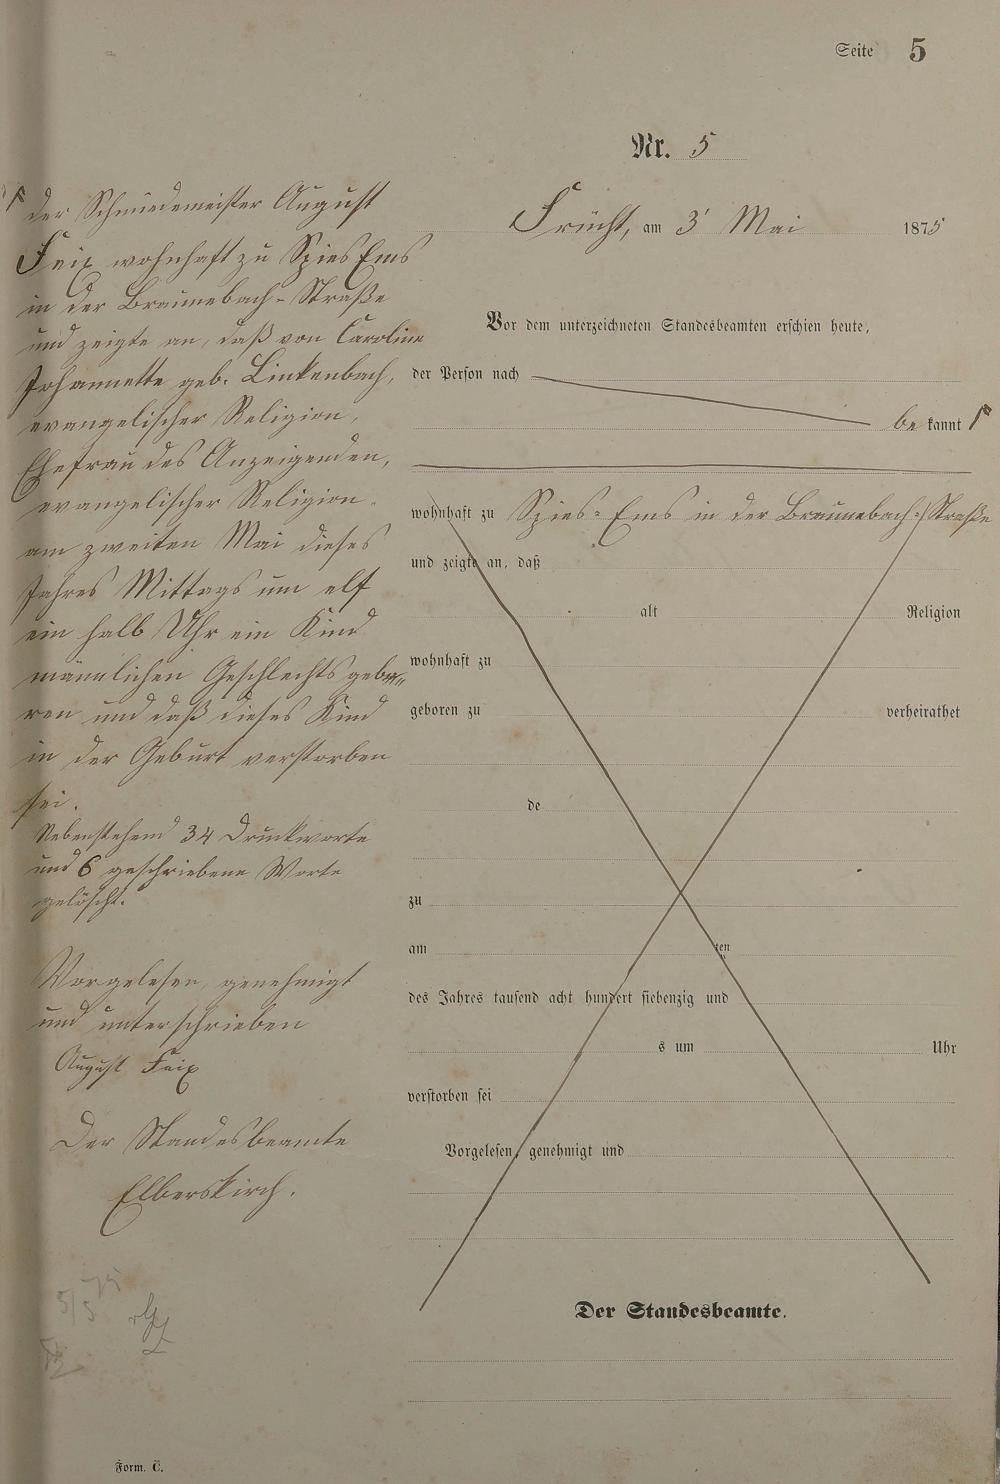 Seite 5
Nr. 5
Frücht, am 3' Mai 1875
Vor dem unterzeichneten Standesbeamten erschien heute,
der Person nach
be kannt
wohnhaft zu Spies-Ems in der Braunebach-Straße
und zeigte an, daß
alt Religion
wohnhaft zu
geboren zu verheirathet
de
zu
am ten
des Jahres tausend acht hundert siebenzig und
s um Uhr
verstorben sei
Vorgelesen, genehmigt und
Der Standesbeamte.
der Schmiedemeister August
Feix wohnhaft zu Spies Ems
in der Braunebach-Straße
und zeigte an, daß von Caroline
Johannette geb. Linkenbach,
evangelischer Religion,
Ehefrau des Anzeigenden,
evangelischer Religion
am zweiten Mai dieses
Jahres Mittags um elf
ein halb Uhr ein Kind
männlichen Geschlechts gebo-
ren und daß dieses Kind
in der Geburt verstorben
sei.
Nebenstehend 34 Druckworte
und 6 geschriebene Worte
gelöscht.
Vorgelesen, genehmigt
und unterschrieben
August Feix
Der Standesbeamte
Elberskirch.
5/5 75
Form. C.